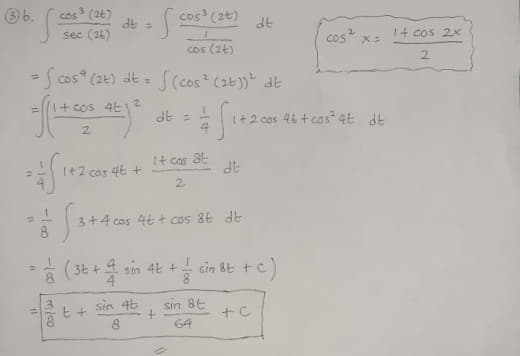 ③b. ∫ cos³(2t)/sec(2t) dt = ∫ cos³(2t)/(1/cos(2t)) dt
cos² x = (1 + cos 2x)/2
= ∫ cos⁴(2t) dt = ∫ (cos²(2t))² dt
= ∫ ((1 + cos 4t)/2)² dt = 1/4 ∫ 1 + 2 cos 4t + cos² 4t dt
= 1/4 ∫ 1 + 2 cos 4t + (1 + cos 8t)/2 dt
= 1/8 ∫ 3 + 4 cos 4t + cos 8t dt
= 1/8 (3t + 4/4 sin 4t + 1/8 sin 8t + C)
= 3/8 t + sin 4t/8 + sin 8t/64 + C